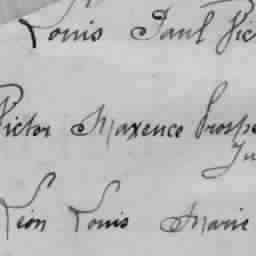 Louis Paul Vic
Victor Maxence Prospe
Ju
Léon Louis Marie